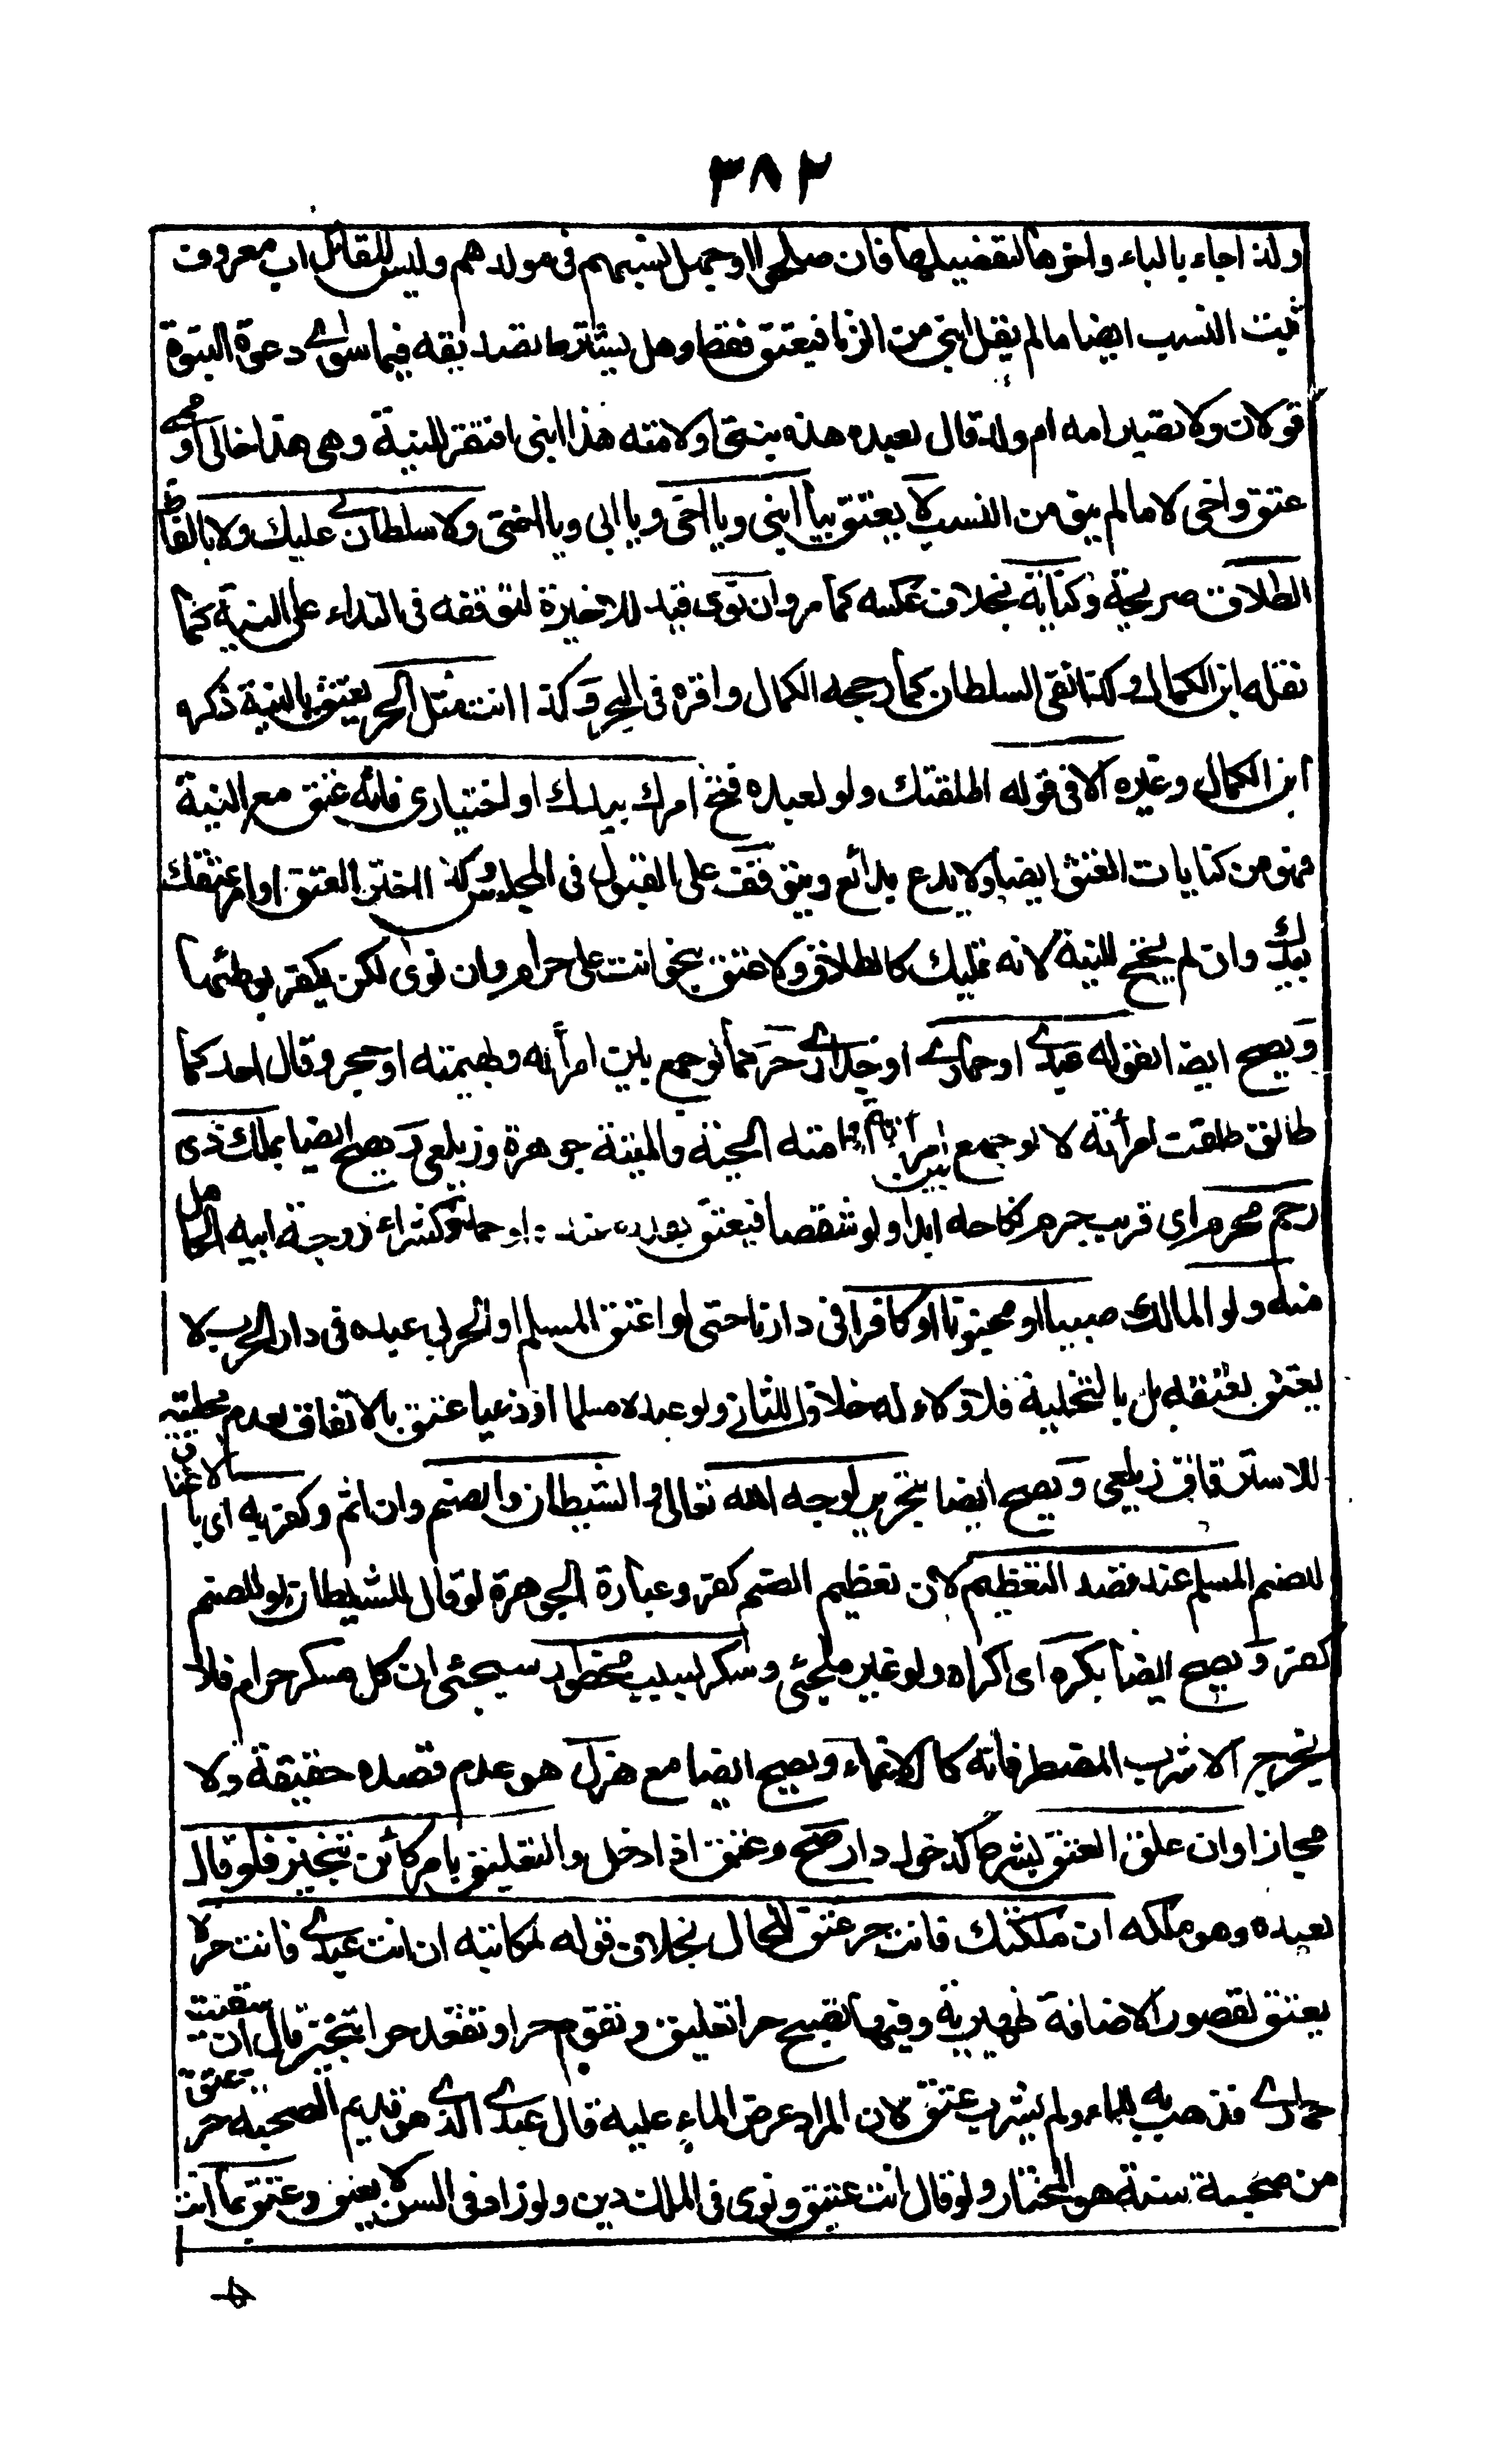 ٣٨٢
ولذا جاء بالباء واخرها لتفصيلها فان صلحا او جهل نسبهم فى مولدهم وليس للقائل اب معروف
ثبت النسب ايضا ما لم يقل ابنى من الزنا فيعتق فقط وهل يشترط تصديقه فيما سوى دعوة البنوة
قولان ولا تصير امه ام ولد قال لعبده هذه بنتى او لامته هذا ابنى افتقر للنية وهى هذا خالى او عمى
عتق واخى لا ما لم ينو من النسب لا يعتق بيا ابنى ويا اخى ويا ابى ويا اختى ولا سلطان لى عليك ولا بالفاظ
الطلاق صريحة وكناية بخلاف عكسه كما مر وان نوى قيد للاخيرة لتوقفه فى النداء على النية كما
نقله ابن الكمال وكذا نفى السلطان كما رجحه الكمال واقره فى البحر وكذا انت مثل الحر يعتق بالنية ذكره
ابن الكمال وغيره الا فى قوله اطلقتك ولو لعبده فتح امرك بيدك او اختيارى فانه عتق مع النية
فهو من كنايات العتق ايضا ولا بدع بدائع ويتوقف على القبول فى المجلس وكذا اختر العتق او امر عتقك
بيدك وان لم يحتج للنية لانه تمليك كالطلاق ولا عتق بنحو انت على حرام وان نوى لكن يكفر بوطئها
ويصح ايضا بقوله عبدى او حمارى او جدارى حر كما لو جمع بين امرأته وبهيمته او حجر وقال احدكما
طالق طلقت امرأته لا لو جمع بين امرأته او امته الحية والميتة جوهرة وزيلعى ويصح ايضا بملك ذى
رحم محرم اى قريب حرم نكاحه ابدا ولو شقصا فيعتق بقدره عنده او حملا كشراء زوجة ابيه الحامل
منه ولو المالك صبيا او مجنونا او كافرا فى دارنا حتى لو اعتق المسلم او الحربى عبده فى دار الحرب لا
يعتق بعتقه بل بالتخلية فلا ولاء له خلافا للثانى ولو عبده مسلما او ذميا عتق بالاتفاق لعدم محليته
للاسترقاق زيلعى ويصح ايضا بتحرير لوجه الله تعالى والشيطان والصنم وان اثم وكفر به اى بالاعتاق
للصنم المسلم عند قصد التعظيم لان تعظيم الصنم كفر وعبارة الجوهرة لو قال للشيطان او للصنم
كفر ويصح ايضا بكره اى اكراه ولو غير ملجئ وسكر بسبب محظور سيجئ ان كل مسكر حرام فلا
يخرج الا شرب المضطر فانه كالاغماء ويصح ايضا مع هزل هو عدم قصده حقيقة ولا
مجازا وان علق العتق بشرط كدخول دار صح وعتق اذا دخل والتعليق بامر كائن تنجيز فلو قال
لعبده وهو ملكه ان ملكتك فانت حر عتق للحال بخلاف قوله لمكاتبه ان انت عبدى فانت حر لا
يعتق لقصور الاضافة ظهيرية وفيها تصبح حرا تعليق وتقوم حرا وتقعد حرا تنجيز قال ان سقيت
حمارى فذهب به للماء ولم يشرب عتق لان المراد عرض الماء عليه قال عبدى الذى هو قديم الصحبة حر عتق
من صحبه سنة هو المختار ولو قال انت عتيق ونوى فى الملك دين ولو زاد فى السن لا يعتق وعتق بما انت